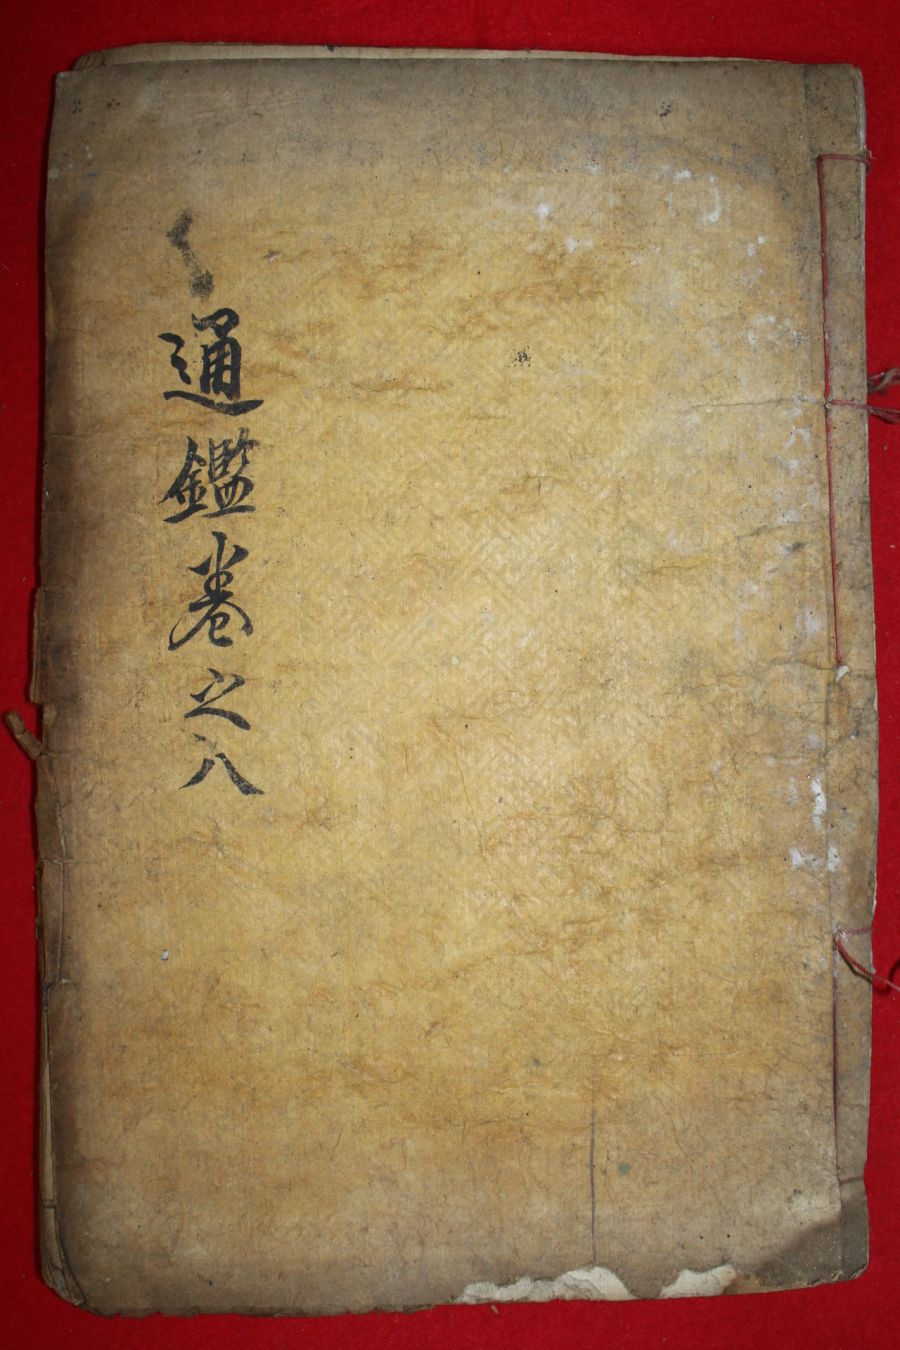 通鑑卷之八